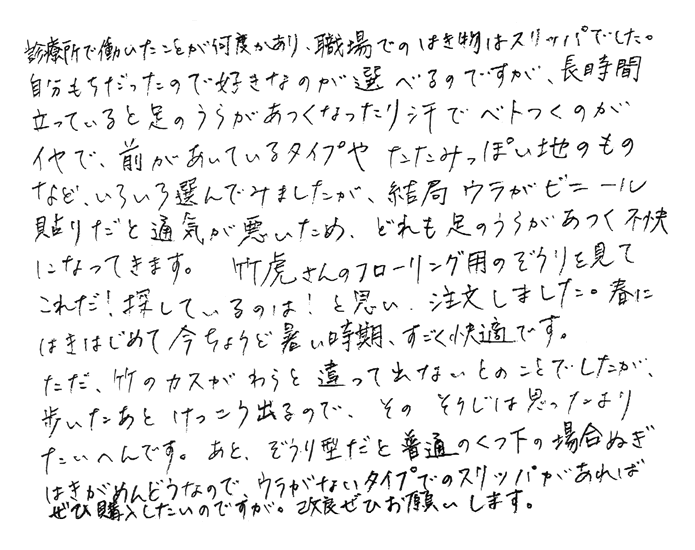 診療所で働いたことが何度かあり、職場でのはき物はスリッパでした。
自分もちだったので好きなのが選べるのですが、長時間
立っていると足のうらがあつくなったり汗でベトつくのが
イヤで、前があいているタイプや たたみっぽい地のもの
など、いろいろ選んでみましたが、結局ウラがビニール
貼りだと通気が悪いため、どれも足のうらがあつく不快
になってきます。 竹虎さんのフローリング用のぞうりを見て
これだ!探しているのは!と思い、注文しました。春に
はきはじめて今ちょうど暑い時期、すごく快適です。
ただ、竹のカスがわらと違って出ないとのことでしたが、
歩いたあとけっこう出るので、そのそうじは思ったより
たいへんです。あと、ぞうり型だと普通のくつ下の場合ぬぎ
はきがめんどうなので、ウラがないタイプでのスリッパがあれば
ぜひ購入したいのですが。改良ぜひお願いします。